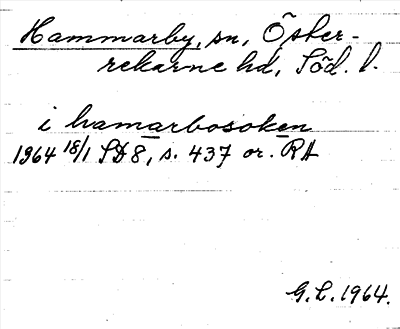 Hammarby, sn, Öster-
rekarne hd, Söd. l.
i hamarbosoken
1964 18/1 SD8, s. 437 or. RA
G. L. 1964.